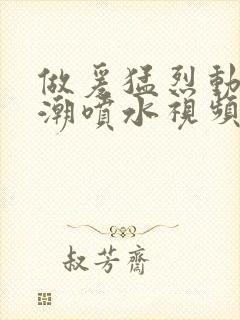 做爰猛烈動
潮噴水視頻
叔芳齋